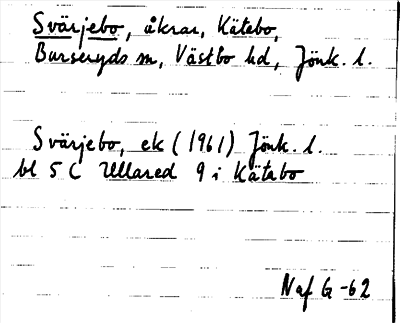 Svärjebo, åkrar, Kätebo,
Burseryds sn, Västbo hd, Jönk. l.
Svärjebo, ek (1961) Jönk. l.
bl 5 C Ullared 9 i Kätabo
Naf G-62